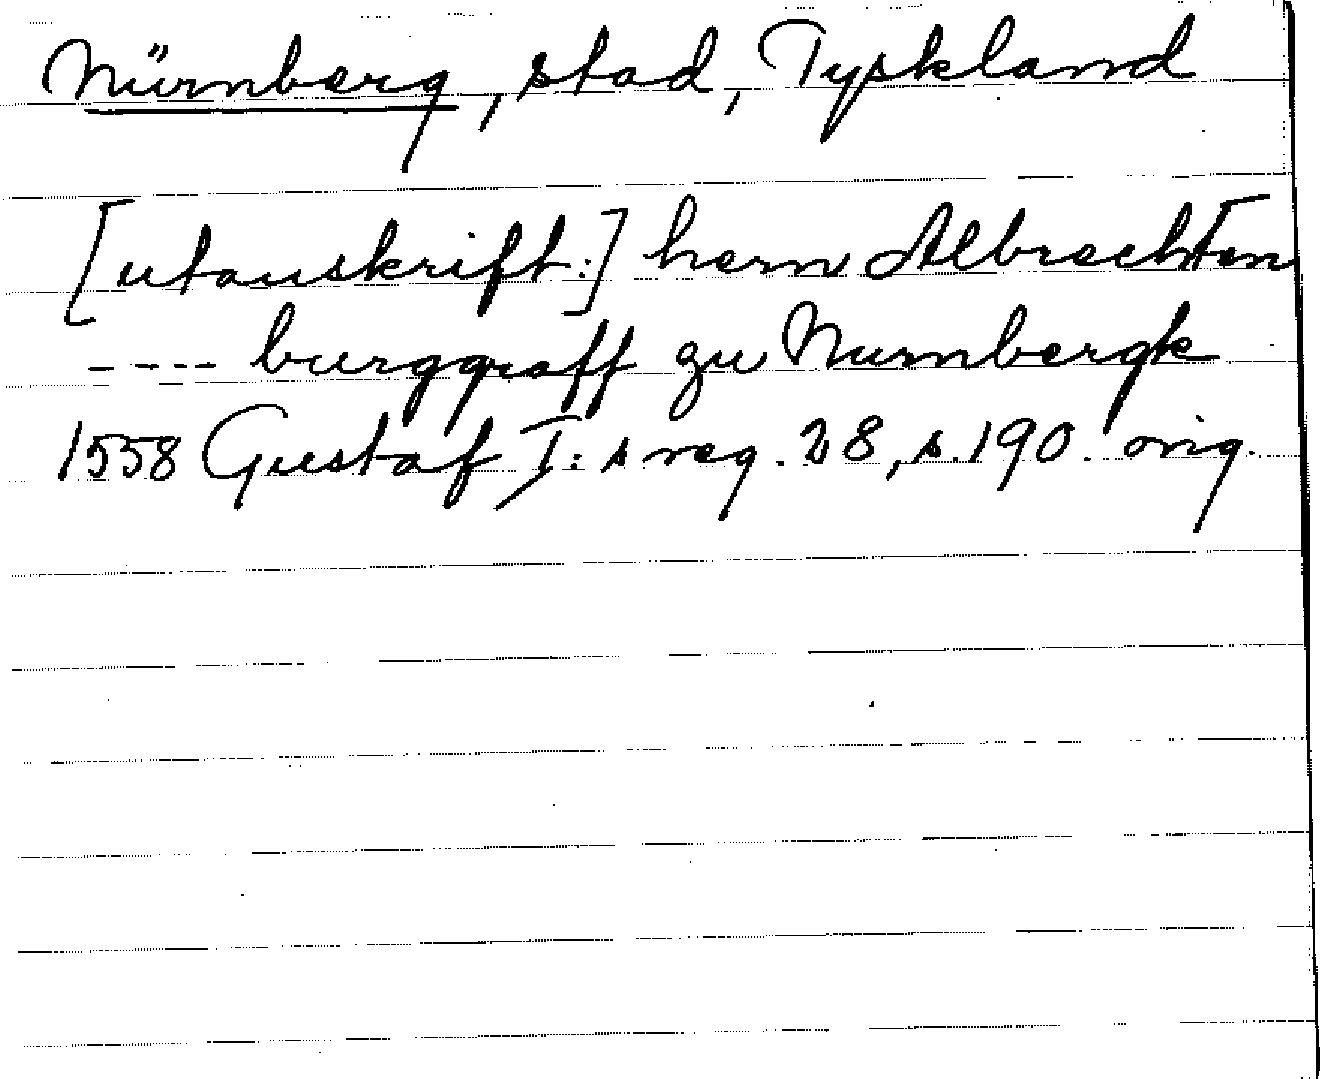 Nürnberg, stad, Tyskland
[utanskrift:] hern Albrechten
---- burggraff zu Nurnbergk
1558 Gustaf I:s reg. 28, s. 190. orig.